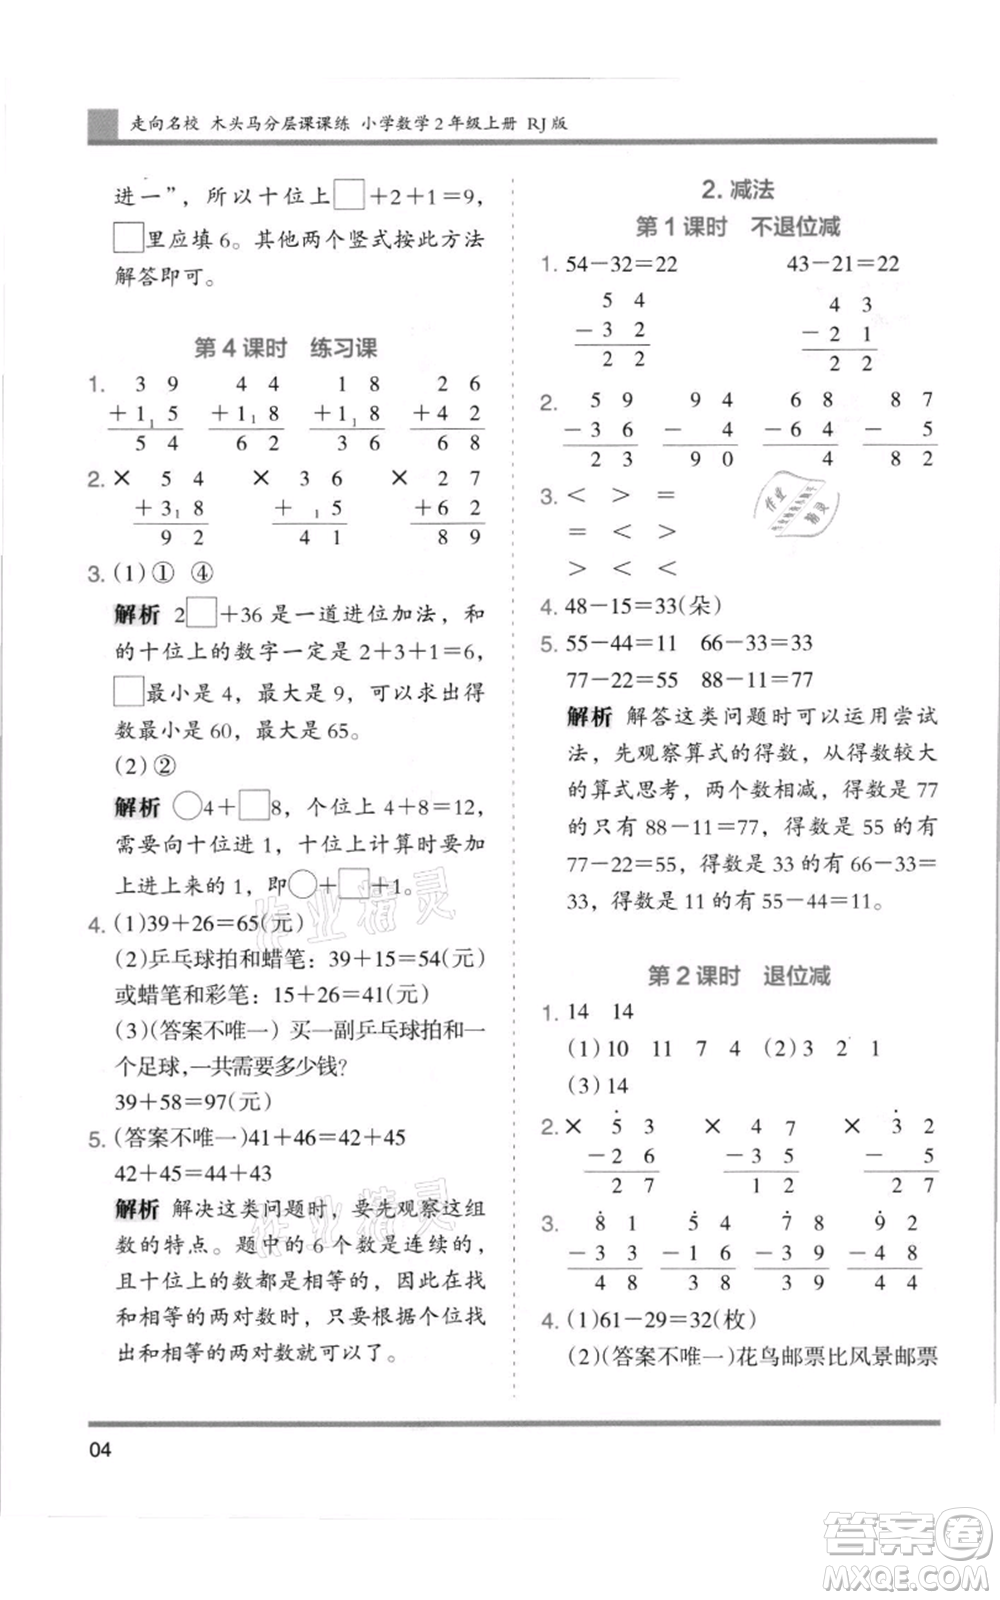 走向名校 木头马分层课课练 小学数学2年级上册 RJ版
进一”，所以十位上□+2+1=9，
□里应填6。其他两个竖式按此方法
解答即可。
第4课时 练习课
1. 3 9  4 4  1 8  2 6
+1₁5  +1₁8  +1₁8  +4 2
5 4  6 2  3 6  6 8
2. × 5 4  × 3 6  × 2 7
+3₁8  + ₁5  +6 2
9 2  4 1  8 9
3. (1)① ④
解析 2□+36是一道进位加法，和
的十位上的数字一定是2+3+1=6，
□最小是4，最大是9，可以求出得
数最小是60，最大是65。
(2)②
解析 ○4+□8，个位上4+8=12，
需要向十位进1，十位上计算时要加
上进上来的1，即○+□+1。
4. (1)39+26=65(元)
(2)乒乓球拍和蜡笔：39+15=54(元)
或蜡笔和彩笔：15+26=41(元)
(3)(答案不唯一)买一副乒乓球拍和一
个足球，一共需要多少钱?
39+58=97(元)
5. (答案不唯一)41+46=42+45
42+45=44+43
解析 解决这类问题时，要先观察这组
数的特点。题中的6个数是连续的，
且十位上的数都是相等的，因此在找
和相等的两对数时，只要根据个位找
出和相等的两对数就可以了。
2. 减法
第1课时 不退位减
1. 54−32=22  43−21=22
5 4  4 3
−3 2  −2 1
2 2  2 2
2. 5 9  9 4  6 8  8 7
−3 6  − 4  −6 4  − 5
2 3  9 0  4  8 2
3. < > =
= < >
> < <
4. 48−15=33(朵)
5. 55−44=11 66−33=33
77−22=55 88−11=77
解析 解答这类问题时可以运用尝试
法，先观察算式的得数，从得数较大
的算式思考，两个数相减，得数是77
的只有88−11=77，得数是55的有
77−22=55，得数是33的有66−33=
33，得数是11的有55−44=11。
第2课时 退位减
1. 14 14
(1)10 11 7 4 (2)3 2 1
(3)14
2. × 5̇ 3  × 4 7  × 3̇ 2
−2 6  −3 5  − 5
2 7  1 2  2 7
3. 8̇ 1  5̇ 4  7̇ 8  9̇ 2
−3 3  −1 6  −3 9  −4 8
4 8  3 8  3 9  4 4
4. (1)61−29=32(枚)
(2)(答案不唯一)花鸟邮票比风景邮票
04
作业精灵
作业精灵
答案卷
MXQE.COM